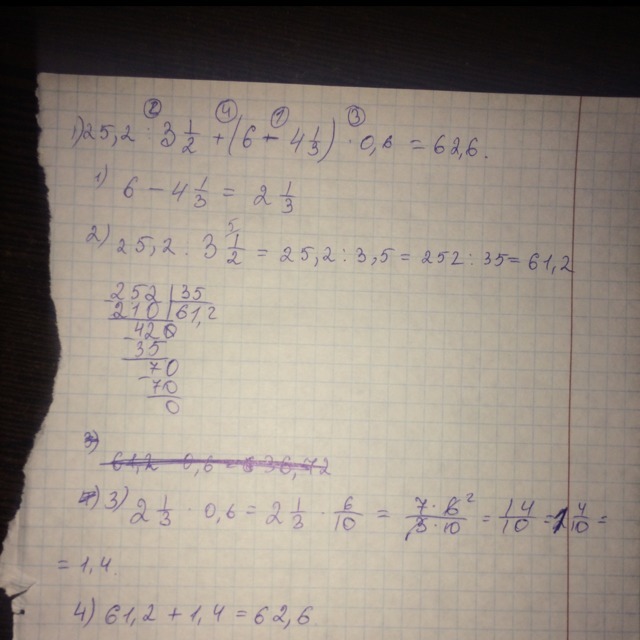 ② ④ ① ③
1) 25,2 : 3 1/2 + (6 - 4 1/3) · 0,6 = 62,6.
1) 6 - 4 1/3 = 2 1/3
2) 25,2 : 3 1/2 = 25,2 : 3,5 = 252 : 35 = 61,2
252 | 35
210 | 61,2
- 420
35
- 70
70
0
3)
61,2 · 0,6 = 36,72
3) 2 1/3 · 0,6 = 2 1/3 · 6/10 = 7·6²/3·10 = 14/10 = 1 4/10 =
= 1,4.
4) 61,2 + 1,4 = 62,6.